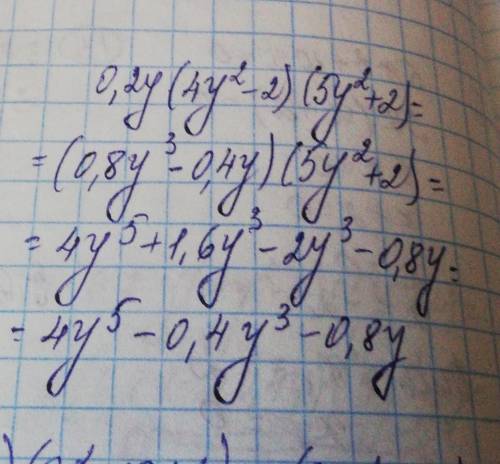 0,2y(4y²-2)(5y²+2)=
=(0,8y³-0,4y)(5y²+2)=
=4y⁵+1,6y³-2y³-0,8y=
=4y⁵-0,4y³-0,8y